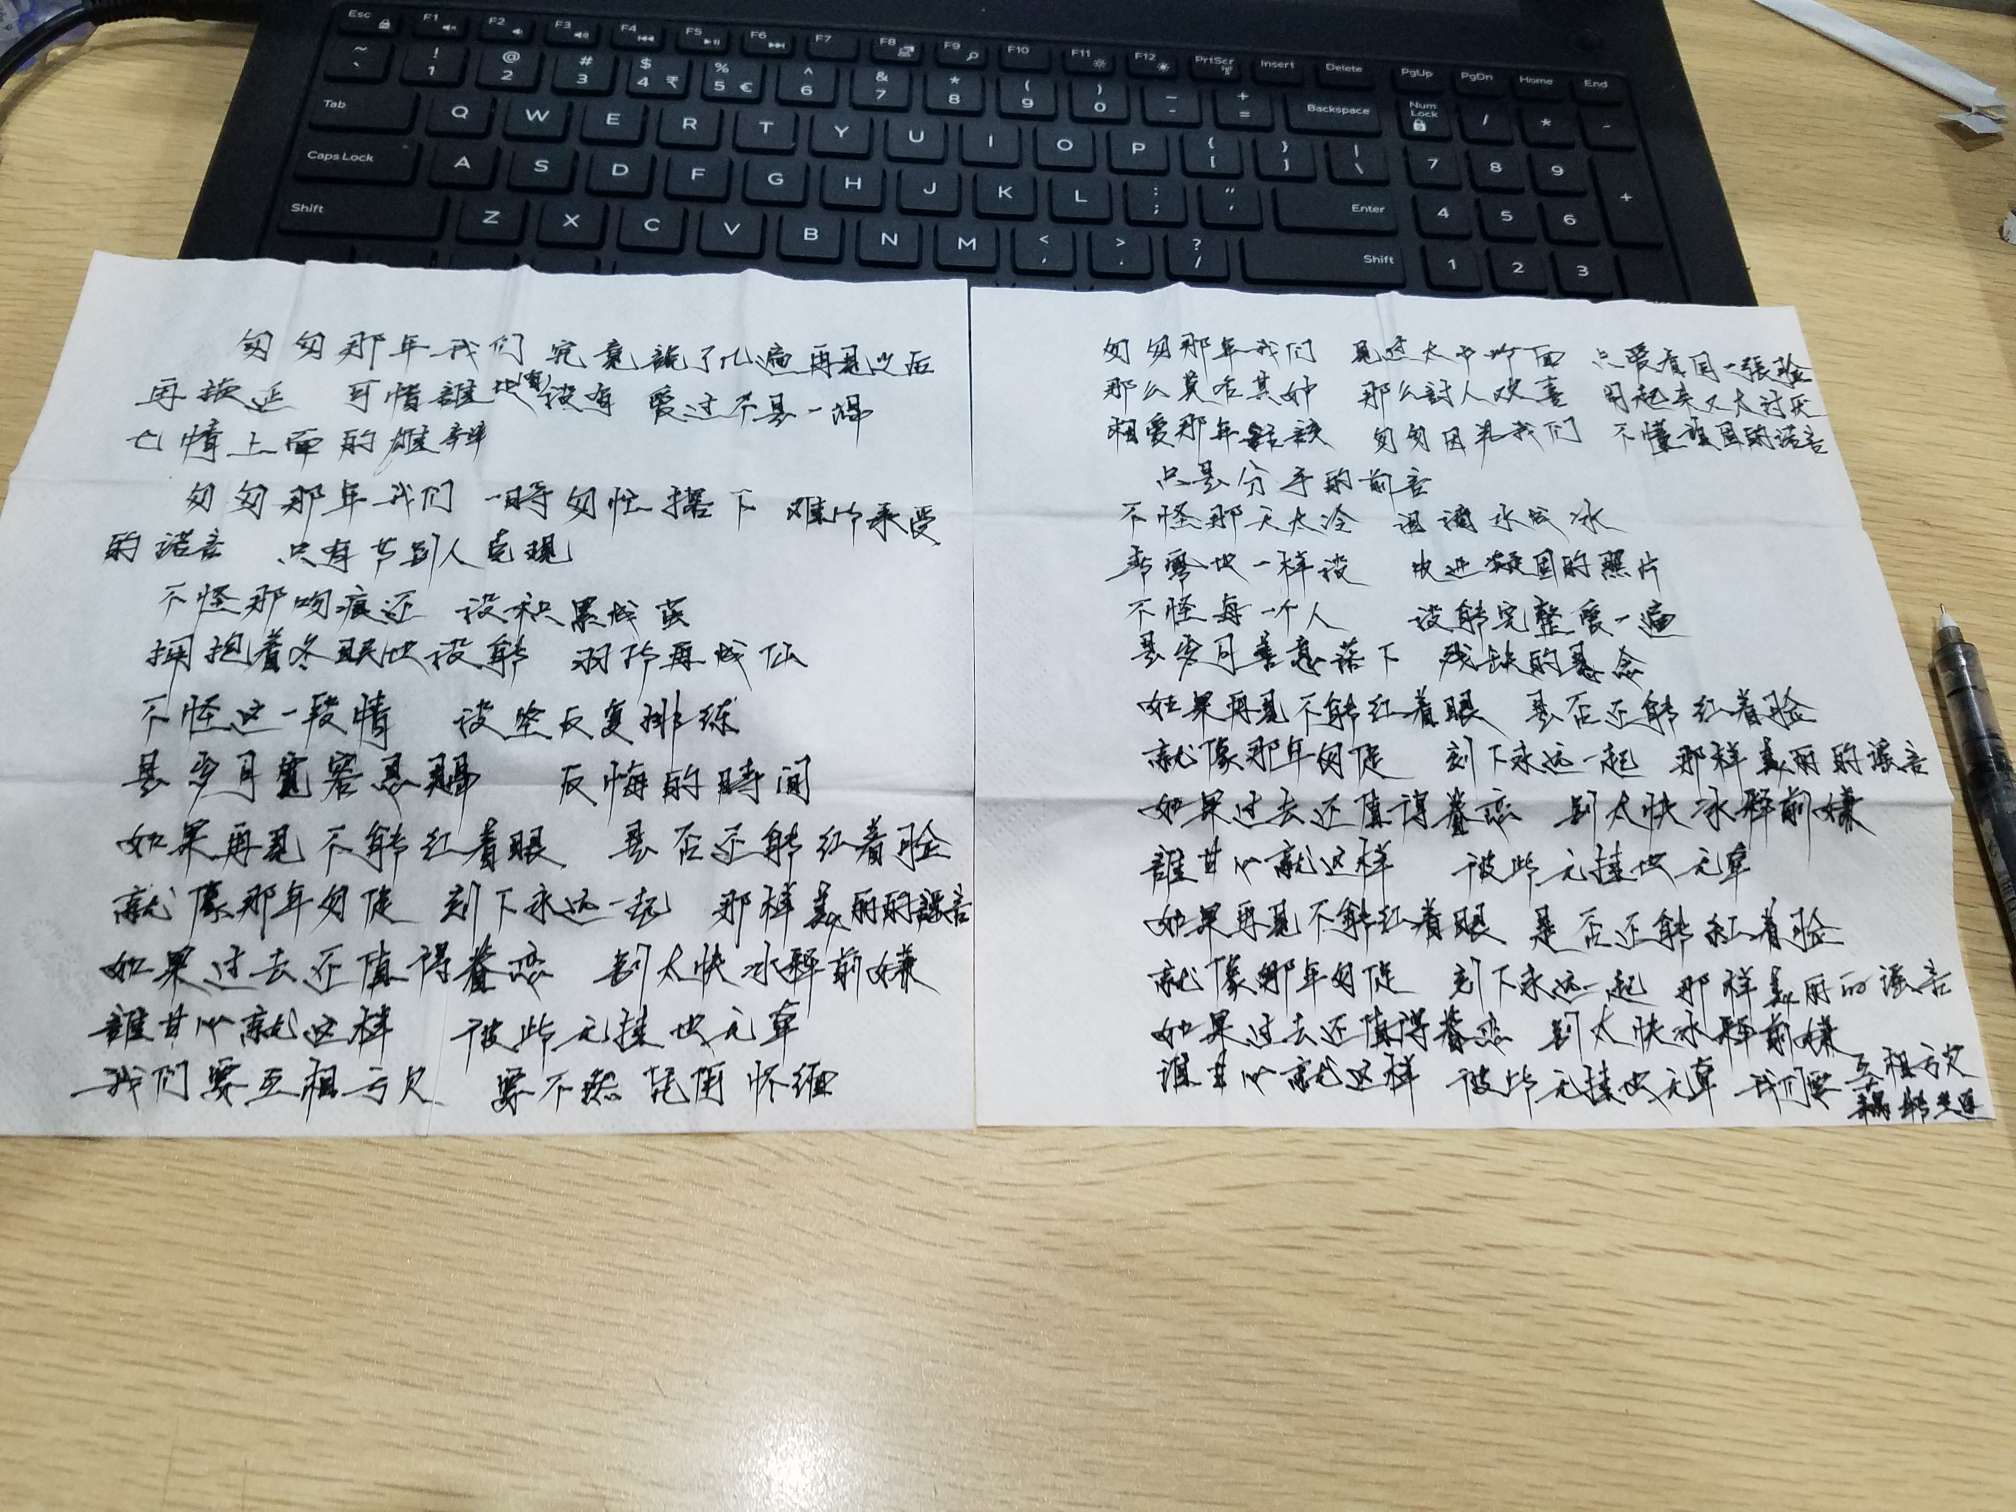 Esc F1 F2 F3 F4 F5 F6 F7 F8 F9 F10 F11 F12 PrtScr Insert Delete PgUp PgDn Home End
~ ` ! 1 @ 2 # 3 $ 4 ₹ % 5 € ^ 6 & 7 * 8 ( 9 ) 0 _ - + = Backspace Num Lock / * -
Tab Q W E R T Y U I O P { [ } ] | \ 7 8 9 +
Caps Lock A S D F G H J K L : ; " ' Enter 4 5 6
Shift Z X C V B N M < , > . ? / Shift 1 2 3
匆匆那年我们 究竟說了几遍再見以后
再拖延 可惜誰也沒有 爱过不是一場
七情上面的雄辯
匆匆那年我们 一時匆忙撂下 难以承受
的诺言 只有等别人兑現
不怪那吻痕还 没积累成茧
拥抱着冬眠也没能 羽化再成仙
不怪这一段情 没空反复排练
是岁月宽容恩賜 反悔的時间
如果再見不能红着眼 是否还能红着脸
就像那年匆促 刻下永远一起 那样美丽的謠言
如果过去还值得眷恋 别太快冰释前嫌
誰甘心就这样 彼此无挂也无牵
我们要互相亏欠 要不然凭何怀缅
匆匆那年我们 見过太少世面 只爱看同一張脸
那么莫名其妙 那么討人欢喜 闹起来又太讨厌
相爱那年活该 匆匆因为我们 不懂顽固的诺言
只是分手的前言
不怪那天太冷 泪滴水成冰
春風也一样没 吹进凝固的照片
不怪每一个人 没能完整爱一遍
是岁月善意落下 残缺的悬念
如果再見不能红着眼 是否还能红着脸
就像那年匆促 刻下永远一起 那样美丽的謠言
如果过去还值得眷恋 别太快冰释前嫌
誰甘心就这样 彼此无挂也无牵
如果再見不能红着眼 是否还能紅着脸
就像那年匆促 刻下永远一起 那样美丽的谣言
如果过去还值得眷恋 别太快冰释前嫌
谁甘心就这样 彼此无挂也无牵 我们要互相亏欠
藕断丝连